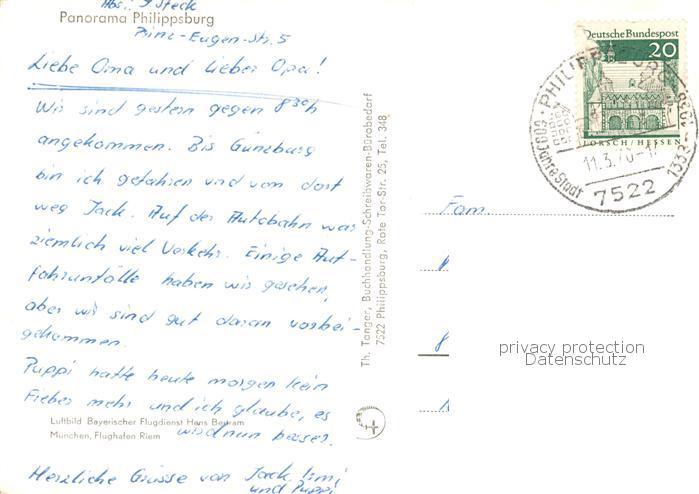 Abs.: J. Steck
Panorama Philippsburg
Prinz-Eugen-Str. 5
Liebe Oma und Lieber Opa!
Wir sind gestern gegen 8³⁰h
angekommen. Bis Günzburg
bin ich gefahren und von dort
weg Jack. Auf der Autobahn war
ziemlich viel Verkehr. Einige Aut-
fahrunfälle haben wir gesehen,
aber wir sind gut daran vorbei-
gekommen.
Puppi hatte heute morgen kein
Fieber mehr und ich glaube, es
wird nun besser.
Luftbild Bayerischer Flugdienst Hans Bertram
München, Flughafen Riem
Herzliche Grüsse von Jack, Irmi
und Puppi
Th. Tanger, Buchhandlung-Schreibwaren-Bürobedarf
7522 Philippsburg, Rote Tor-Str. 25, Tel. 348
Deutsche Bundespost
20
LORSCH/HESSEN
PHILIPPSBURG
11.3.70-1
7522
600 Jahre Stadt
1338-1938
Fam.
privacy protection
Datenschutz